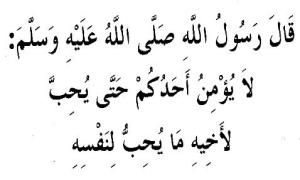 قَالَ رَسُولُ اللَّهِ صَلَّى اللَّهُ عَلَيْهِ وَسَلَّمَ:
لَا يُؤْمِنُ أَحَدُكُمْ حَتَّى يُحِبَّ
لِأَخِيهِ مَا يُحِبُّ لِنَفْسِهِ